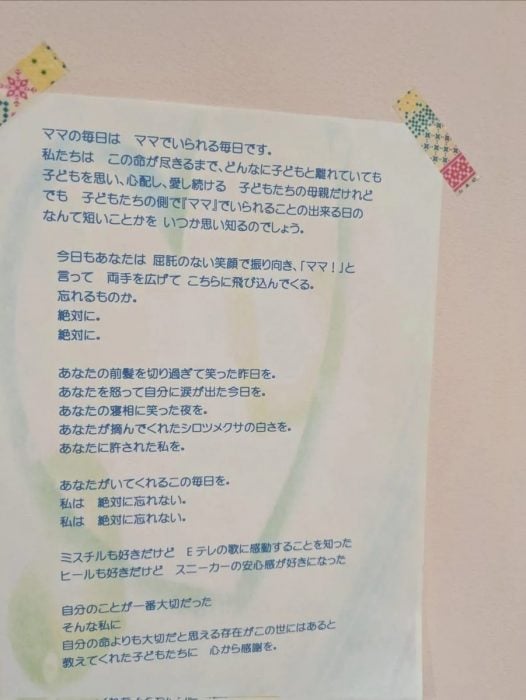 ママの毎日は　ママでいられる毎日です。
私たちは　この命が尽きるまで、どんなに子どもと離れていても
子どもを思い、心配し、愛し続ける　子どもたちの母親だけれど
でも　子どもたちの側で『ママ』でいられることの出来る日の
なんて短いことかを　いつか思い知るのでしょう。
今日もあなたは　屈託のない笑顔で振り向き、「ママ！」と
言って　両手を広げて　こちらに飛び込んでくる。
忘れるものか。
絶対に。
絶対に。
あなたの前髪を切り過ぎて笑った昨日を。
あなたを怒って自分に涙が出た今日を。
あなたの寝相に笑った夜を。
あなたが摘んでくれたシロツメクサの白さを。
あなたに許された私を。
あなたがいてくれるこの毎日を。
私は　絶対に忘れない。
私は　絶対に忘れない。
ミスチルも好きだけど　Eテレの歌に感動することを知った
ヒールも好きだけど　スニーカーの安心感が好きになった
自分のことが一番大切だった
そんな私に
自分の命よりも大切だと思える存在がこの世にはあると
教えてくれた子どもたちに　心から感謝を。